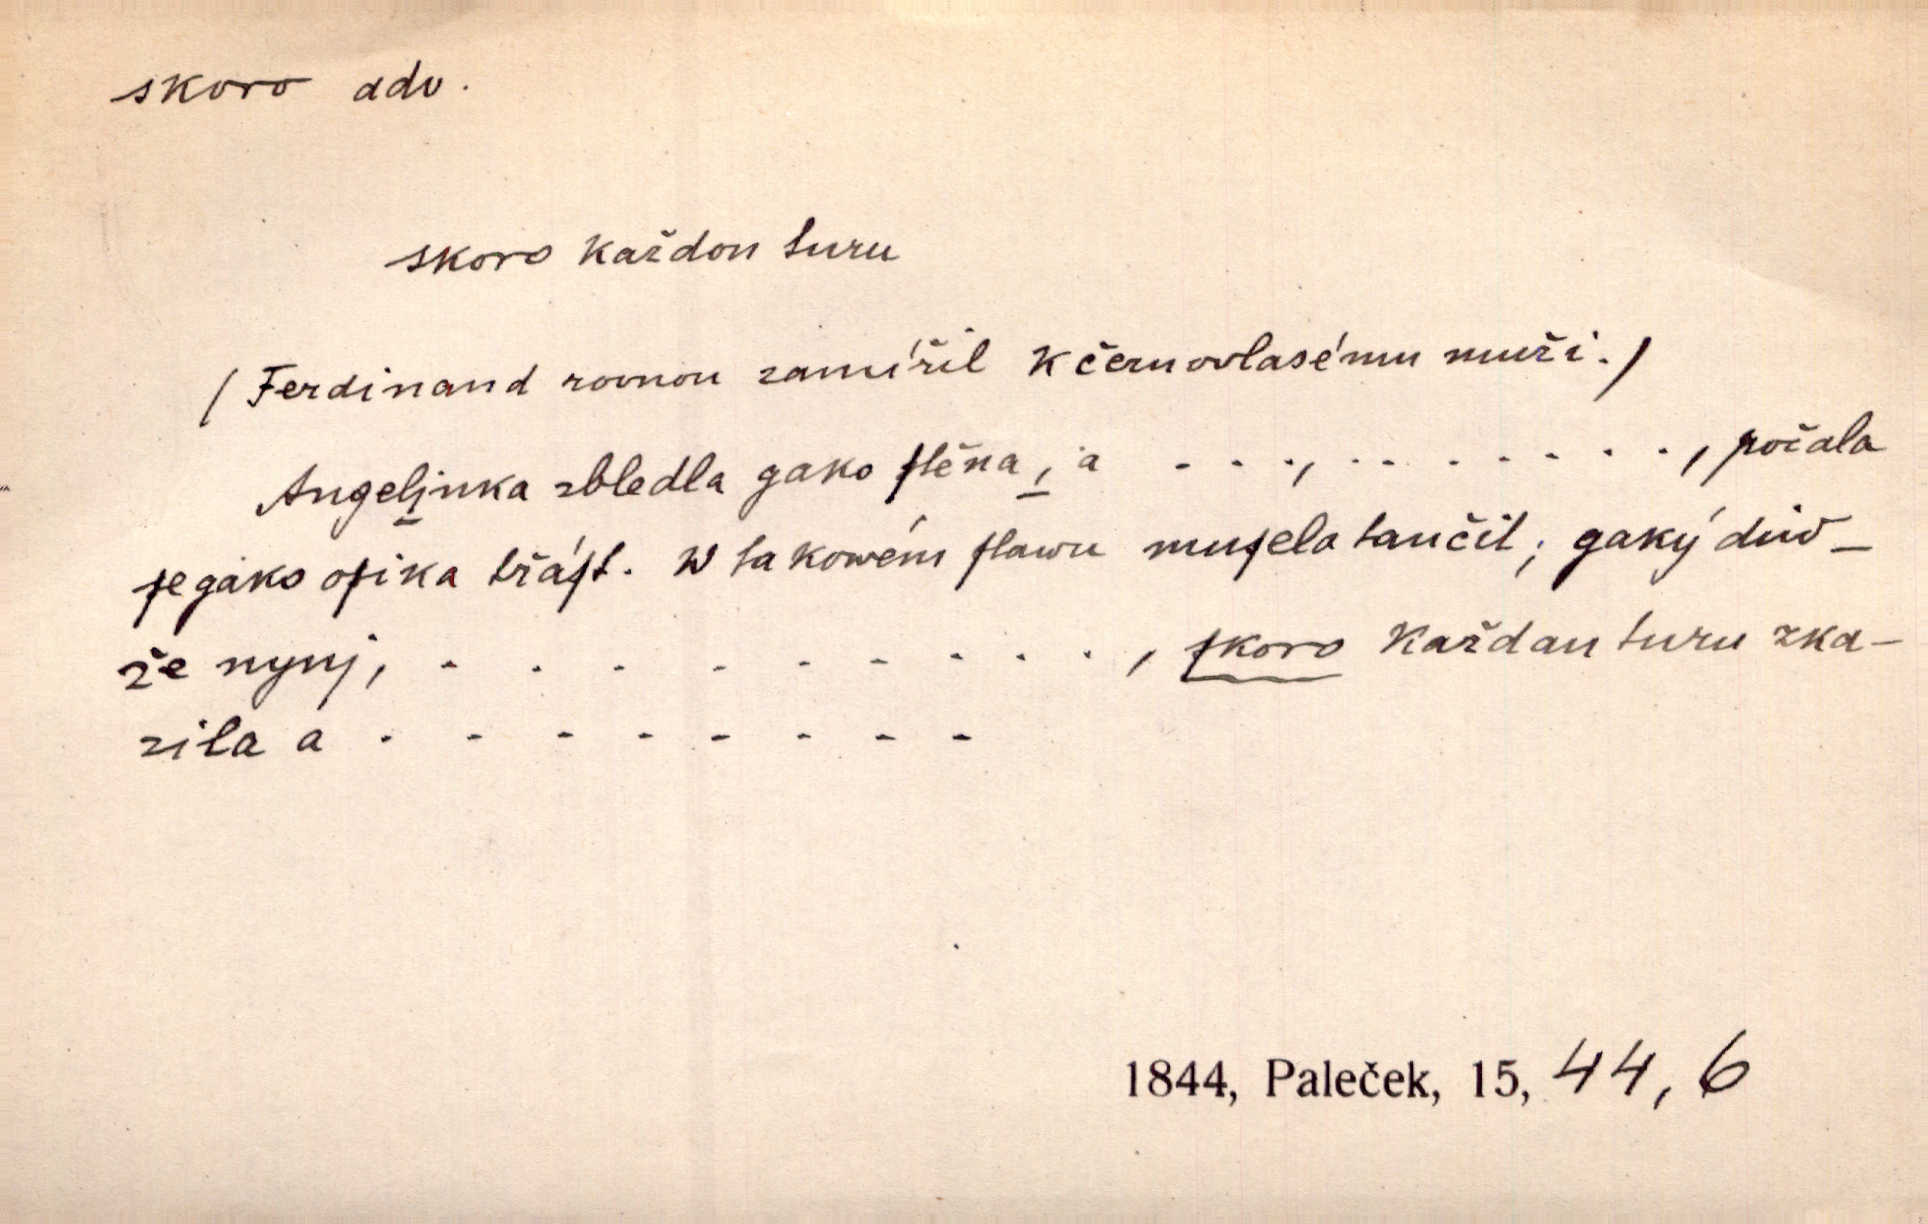 skoro adv.
skoro každou turu
/ Ferdinand rovnou zamířil k černovlasému muži. /
Angeljnka zbledla gako ſtěna, a - - -, - - - - - - - -, počala
ſe gako oſika třáſt. W takowém ſtawu muſela tančit; gaký diw –
že nynj, - - - - - - - - -, ſkoro každau turu zka–
zila a - - - - - - - -
1844, Paleček, 15, 44, 6